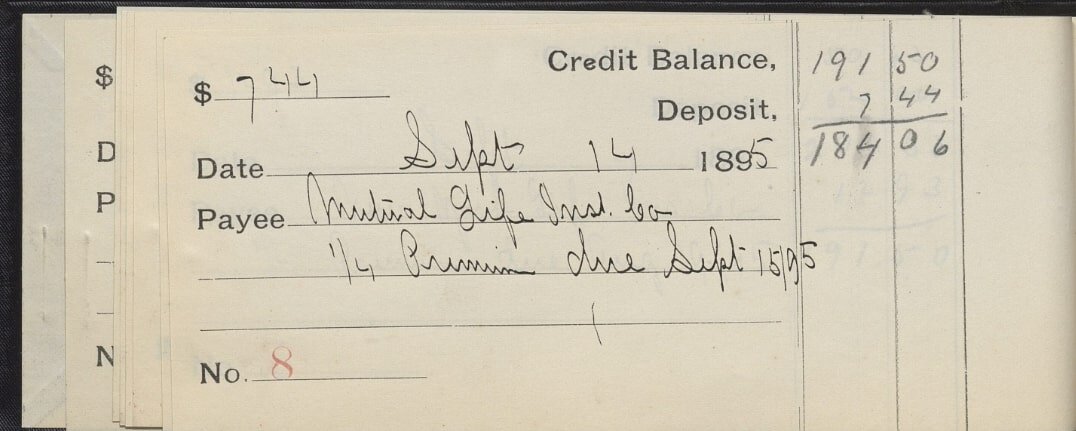 $
D
P
N
Credit Balance, 191 50
$ 7 44
Deposit, 7 44
184 06
Date Sept 14 1895
Payee Mutual Life Inst. Co
1/4 Premium due Sept 15/95
No. 8